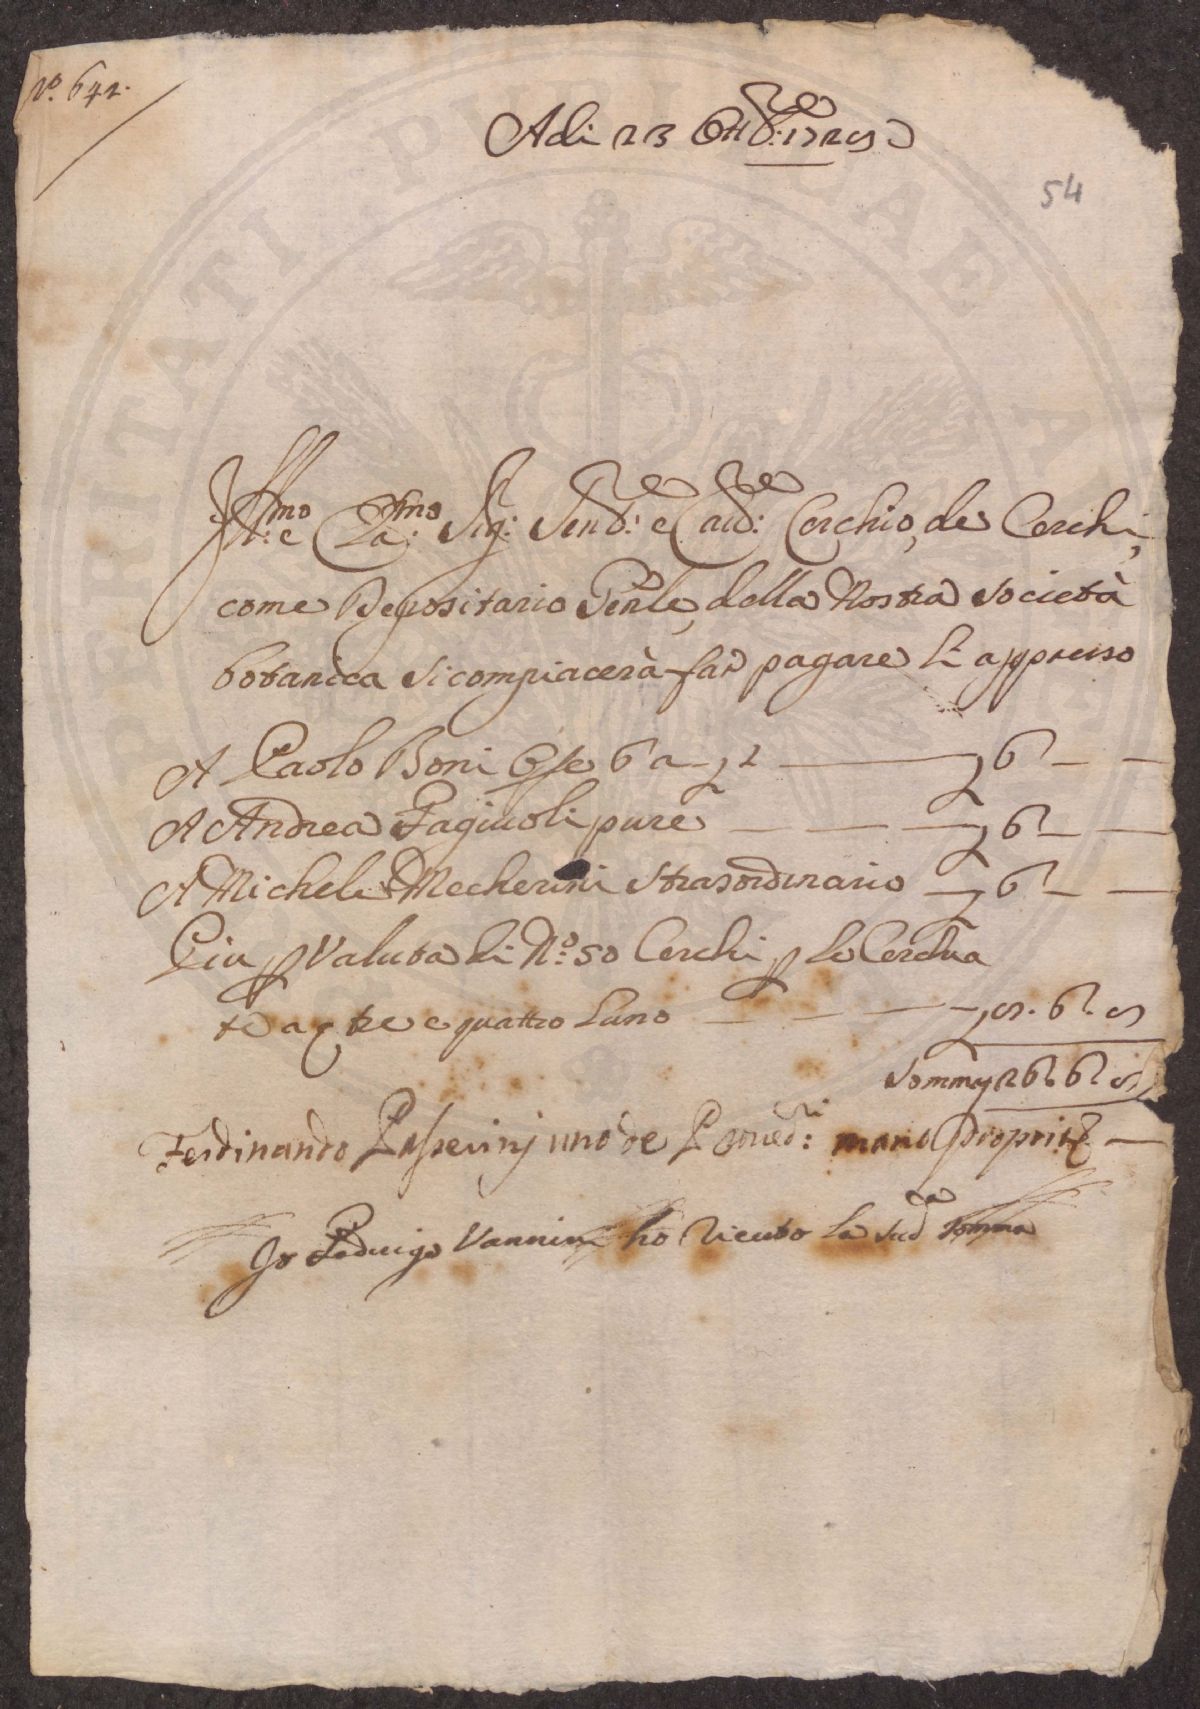 N.º 642.
Adi 23 Ott.re 1725
54
Ill.mo e Cla.mo Sig.r Sen.re e Cav.re Cerchio de Cerchi,
come Depositario Genle, della Nostra Società
botanica si compiacerà far pagare li appresso
A Paolo Boni Op.e 6 a £ 1 — £ 6 — —
A Andrea Fagiuoli pure — — — £ 6 — —
A Michele Mecherini Straordinario — £ 6 — —
Piu p Valuta di N.º 50 Cerchi p le Cerchia
te a q tre e quattro luno — — — — £ 8. 6. 8
Somma £ 26. 6. 8
Ferdinando Passerinj uno de Proved.ri mano propria —
Io Lodovigo Vannini ho riceuto la sud.a somma